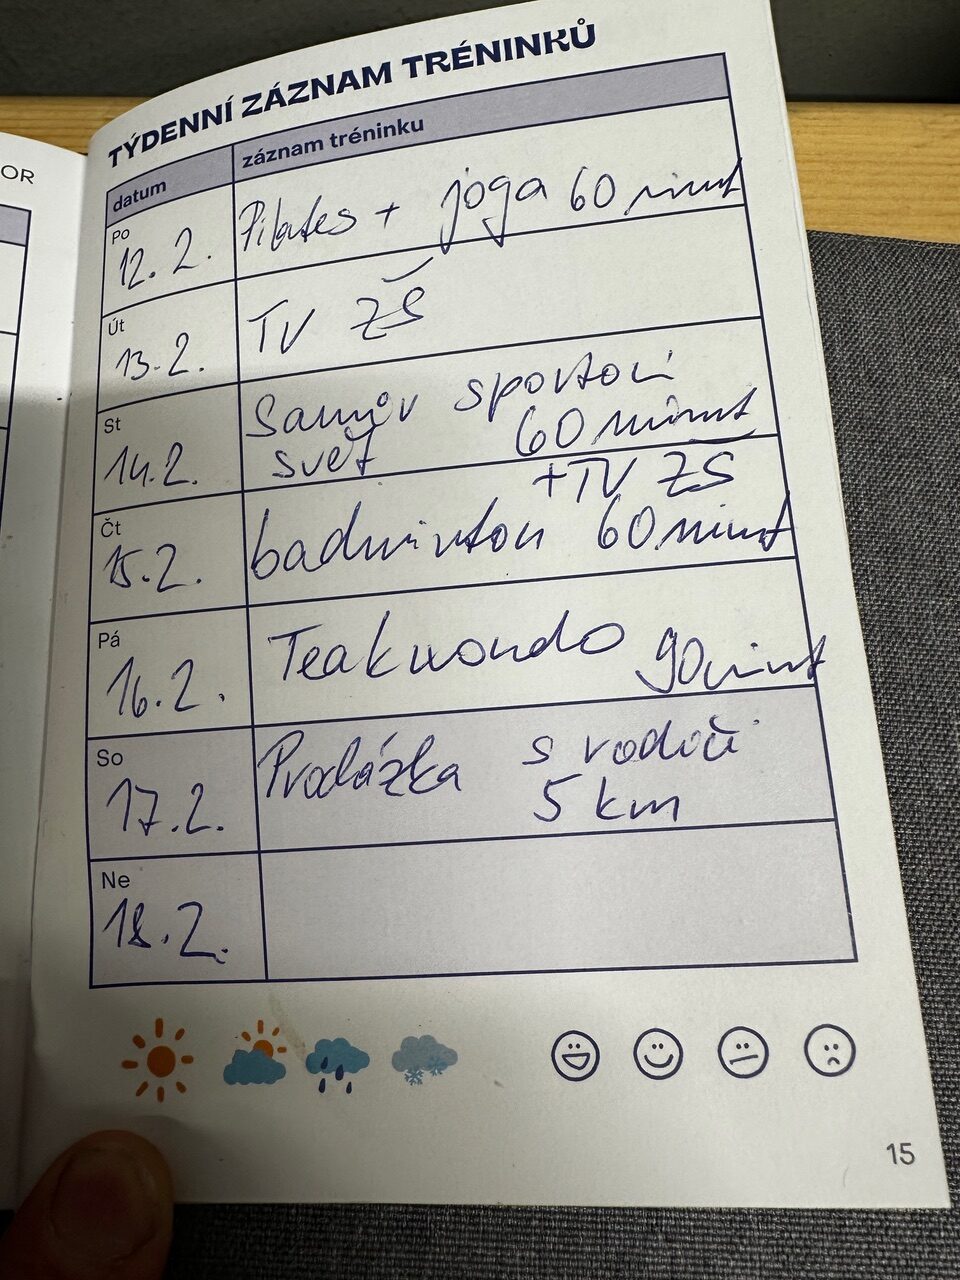 OR
TÝDENNÍ ZÁZNAM TRÉNINKŮ
datum záznam tréninku
Po
12. 2. Pilates + joga 60 minut
Út
13. 2. TV ZŠ
St
14. 2. Samův sportovní
svět 60 minut
+ TV ZŠ
Čt
15. 2. badminton 60 minut
Pá
16. 2. Teakwondo 90 minut
So
17. 2. Procházka s rodiči
5 km
Ne
18. 2.
15